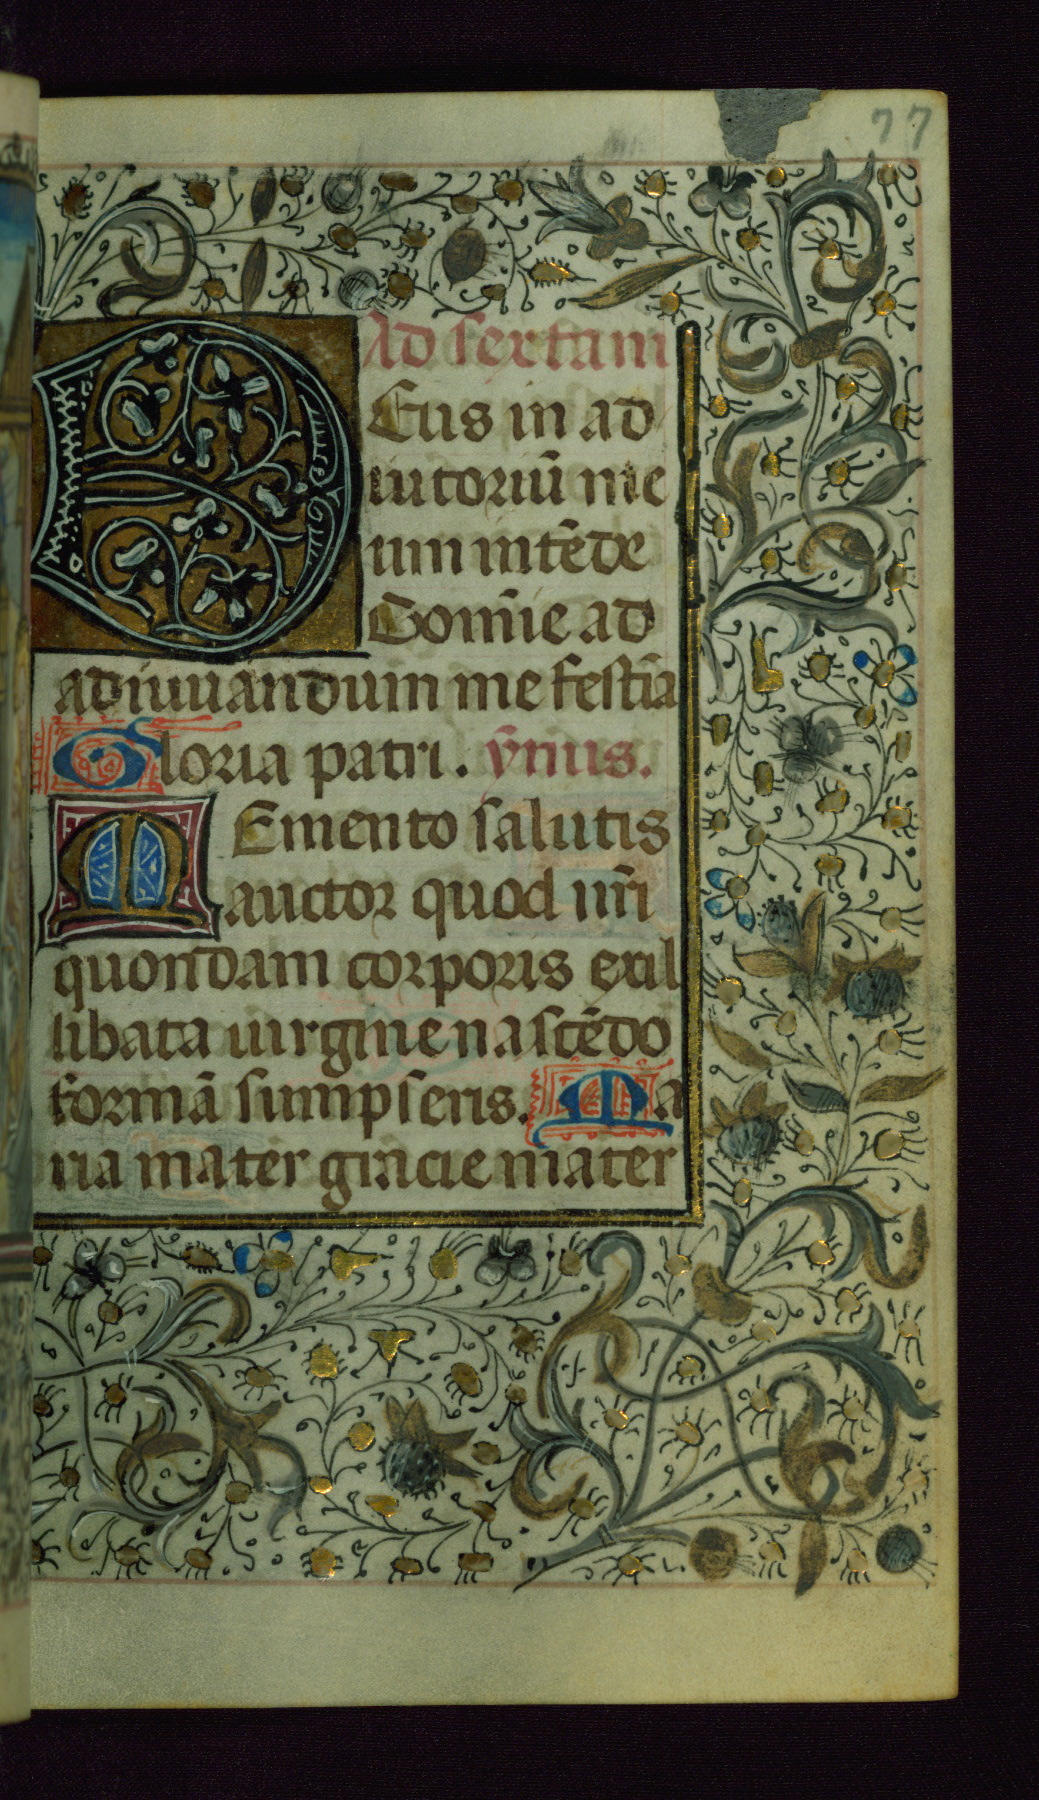 77
Ad sextam
DEus in ad
iutoriū me
um intēde
Domīe ad
adiuuandum me festīa
Gloria patri. ẏmus.
MEmento salutis
auctor quod nr̄i
quondam corporis exil
libata uirgine nascēdo
formā sumpseris. Ma
ria mater gracie mater